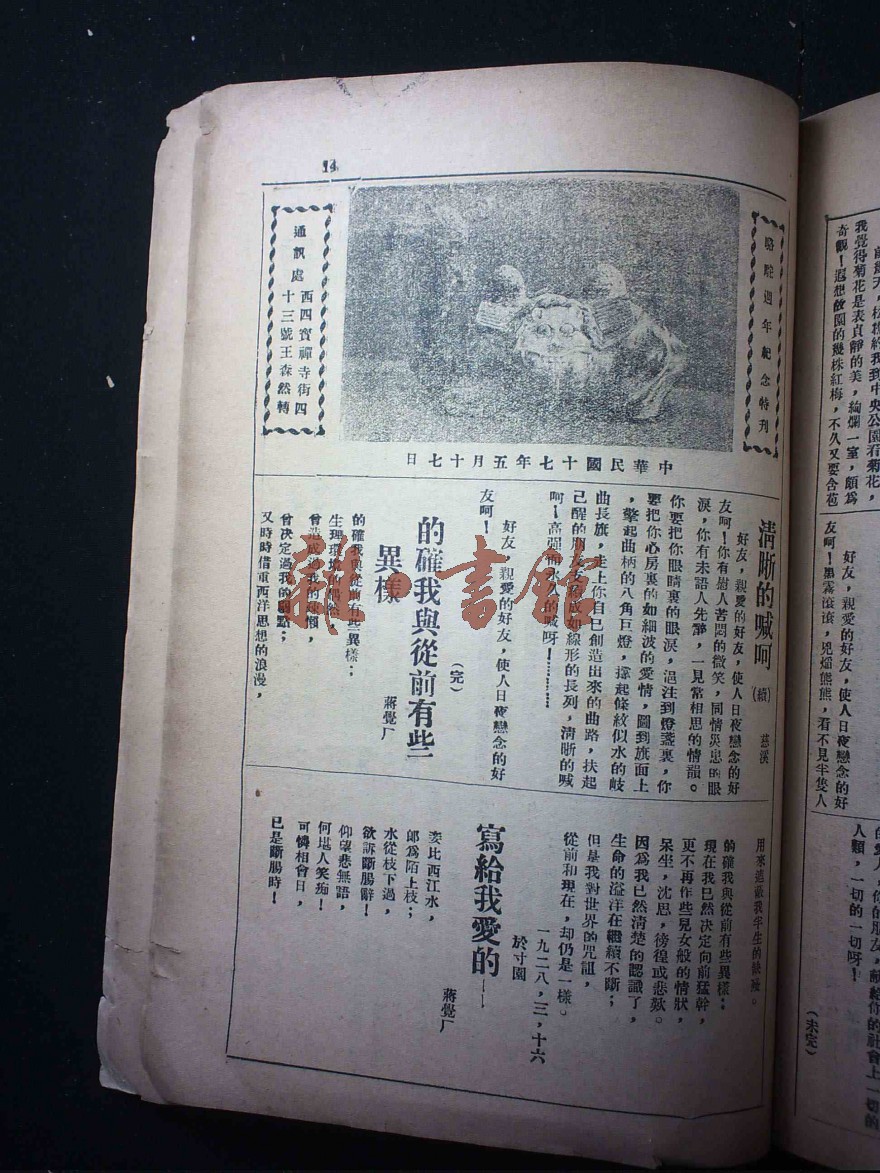 14
駱駝週年紀念特刊
通訊處
西四寶禪寺街四
十三號王森然轉
中華民國十七年五月十七日
清晰的喊呵
(續)
慈溪
好友，親愛的好友，使人日夜戀念的好
友呵！你有慰人苦悶的微笑，同情災患的眼
淚，你有未語人先顰，一見常相思的情韻。
你要把你眼睛裏的眼淚，浥注到燈盞裏，你
要把你心房裏的如細波的愛情，圖到旗面上
，擎起曲柄的八角巨燈，撐起條紋似水的歧
曲長旗，走上你自己創造出來的曲路，扶起
己醒的朋友，成如線形的長列，清晰的喊
呵！高強人的喊呀！…………
好友，親愛的好友，使人日夜戀念的好
友呵！
(完)
的確我與從前有些
異樣
蔣覺厂
的確我與從前有些異樣：
生理環境的
曾造成過我的
曾決定過我的點；
又時時借重西洋思想的浪漫，
用來追我半生的缺。
的確我與從前有些異樣：
現在我已然決定向前猛幹，
更不再作些兒女般的情狀，
呆坐，沈思，徬徨或悲歎。
因為我已然清楚的認識了，
生命的溢洋在繼續不斷；
但是我對世界的咒詛，
從前和現在，却仍是一樣。
一九二八，三，十六
於寸園
寫給我愛的——
蔣覺厂
妾比西江水，
郎為陌上枝；
水從枝下過，
欲訴斷腸辭！
仰望悲無語，
何堪人笑痴！
可憐相會日，
已是斷腸時！
前幾天，松約我到中央公園看菊花，
我覺得菊花是表貞靜的美，絢爛一室，頗為
奇觀！遐想故園的幾株紅梅，不久又要含苞
好友，親愛的好友，使人日夜戀念的好
友呵！墨霧滾滾，兇燄熊熊，看不見半隻人
的愛人，你的朋友，獻給你的社會上一切的
人類，一切的一切呀！
(未完)
雜書館